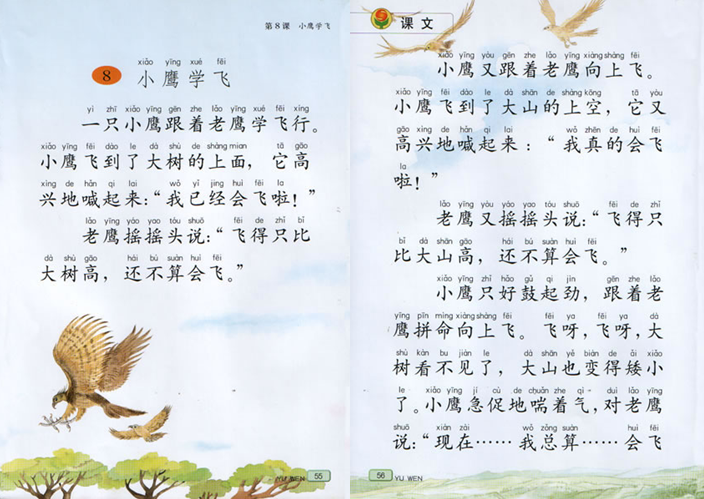 第8课 小鹰学飞
xiǎo yīng xué fēi
8 小鹰学飞
yì zhī xiǎo yīng gēn zhe lǎo yīng xué fēi xíng
一只小鹰跟着老鹰学飞行。
xiǎo yīng fēi dào le dà shù de shàng mian tā gāo
小鹰飞到了大树的上面，它高
xìng de hǎn qi lai wǒ yǐ jing huì fēi la
兴地喊起来：“我已经会飞啦！”
lǎo yīng yáo yao tóu shuō fēi de zhǐ bǐ
老鹰摇摇头说：“飞得只比
dà shù gāo hái bú suàn huì fēi
大树高，还不算会飞。”
YU WEN 55
课文
xiǎo yīng yòu gēn zhe lǎo yīng xiàng shàng fēi
小鹰又跟着老鹰向上飞。
xiǎo yīng fēi dào le dà shān de shàng kōng tā yòu
小鹰飞到了大山的上空，它又
gāo xìng de hǎn qi lai wǒ zhēn de huì fēi
高兴地喊起来：“我真的会飞
la
啦！”
lǎo yīng yòu yáo yao tóu shuō fēi de zhǐ
老鹰又摇摇头说：“飞得只
bǐ dà shān gāo hái bú suàn huì fēi
比大山高，还不算会飞。”
xiǎo yīng zhǐ hǎo gǔ qǐ jìn gēn zhe lǎo
小鹰只好鼓起劲，跟着老
yīng pīn mìng xiàng shàng fēi fēi ya fēi ya dà
鹰拼命向上飞。飞呀，飞呀，大
shù kàn bu jiàn le dà shān yě biàn de ǎi xiǎo
树看不见了，大山也变得矮小
le xiǎo yīng jí cù de chuǎn zhe qì duì lǎo yīng
了。小鹰急促地喘着气，对老鹰
shuō xiàn zài wǒ zǒng suàn huì fēi
说：“现在……我总算……会飞
56 YU WEN